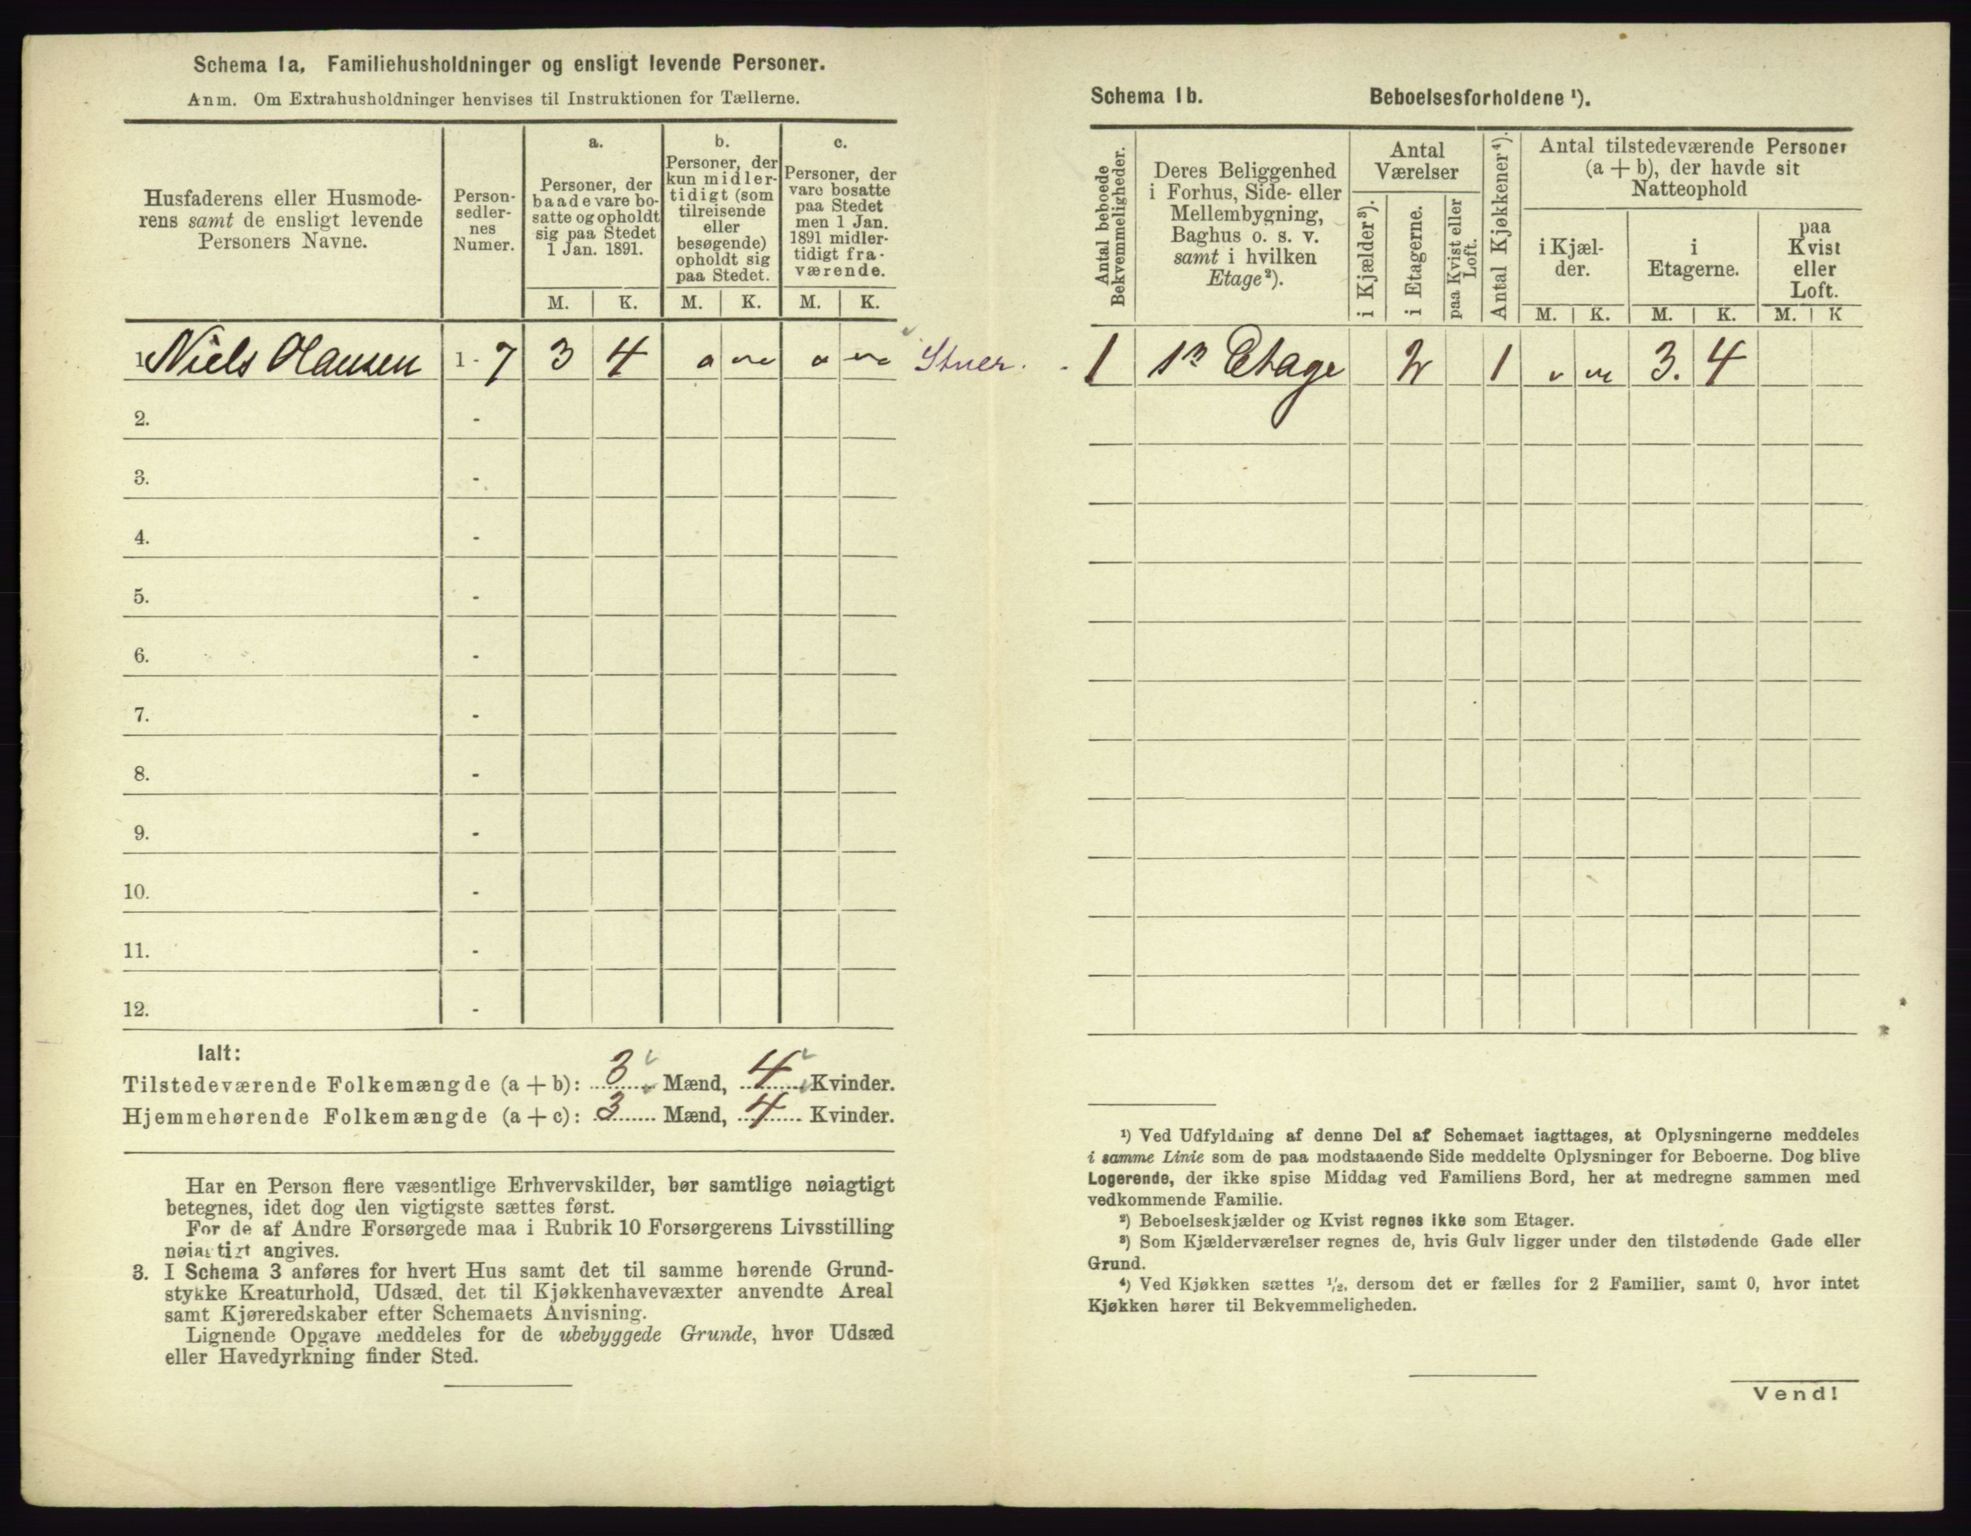 Schema 1a, Familiehusholdninger og ensligt levende Personer.
Anm. Om Extrahusholdninger henvises til Instruktionen for Tællerne.
Husfaderens eller Husmode-
rens samt de ensligt levende
Personers Navne.
Person-
sedler-
nes
Numer.
a.
Personer, der
baade vare bo-
satte og opholdt
sig paa Stedet
1 Jan. 1891.
b.
Personer, der
kun midler-
tidigt (som
tilreisende
eller
besøgende)
opholdt sig
paa Stedet.
c.
Personer, der
vare bosatte
paa Stedet
men 1 Jan.
1891 midler-
tidigt fra-
værende.
M. K. M. K. M. K.
1. Niels Olausen 1 - 7 3 4
2. -
3. -
4. -
5. -
6. -
7. -
8. -
9. -
10. -
11. -
12. -
Ialt:
Tilstedeværende Folkemængde (a + b): 3 Mænd, 4 Kvinder.
Hjemmehørende Folkemængde (a + c): 3 Mænd, 4 Kvinder.
Har en Person flere væsentlige Erhvervskilder, bør samtlige nøiagtigt
betegnes, idet dog den vigtigste sættes først.
For de af Andre Forsørgede maa i Rubrik 10 Forsørgerens Livsstilling
nøiagtigt angives.
3. I Schema 3 anføres for hvert Hus samt det til samme hørende Grund-
stykke Kreaturhold, Udsæd, det til Kjøkkenhavevæxter anvendte Areal
samt Kjøreredskaber efter Schemaets Anvisning.
Lignende Opgave meddeles for de ubebyggede Grunde, hvor Udsæd
eller Havedyrkning finder Sted.
Schema 1b. Beboelsesforholdene ¹).
Antal beboede
Bekvemmeligheder.
Deres Beliggenhed
i Forhus, Side- eller
Mellembygning,
Baghus o. s. v.
samt i hvilken
Etage²).
Antal
Værelser
i Kjælder³).
i Etagerne.
paa Kvist eller
Loft.
Antal Kjøkkener⁴).
Antal tilstedeværende Personer
(a + b), der havde sit
Natteophold
i Kjæl-
der.
i
Etagerne.
paa
Kvist
eller
Loft.
M. K. M. K. M. K
1 Etage 2 1 3. 4
¹) Ved Udfyldning af denne Del af Schemaet iagttages, at Oplysningerne meddeles
i samme Linie som de paa modstaaende Side meddelte Oplysninger for Beboerne. Dog blive
Logerende, der ikke spise Middag ved Familiens Bord, her at medregne sammen med
vedkommende Familie.
²) Beboelseskjælder og Kvist regnes ikke som Etager.
³) Som Kjælderværelser regnes de, hvis Gulv ligger under den tilstødende Gade eller
Grund.
⁴) Ved Kjøkken sættes ½, dersom det er fælles for 2 Familier, samt 0, hvor intet
Kjøkken hører til Bekvemmeligheden.
Vend!